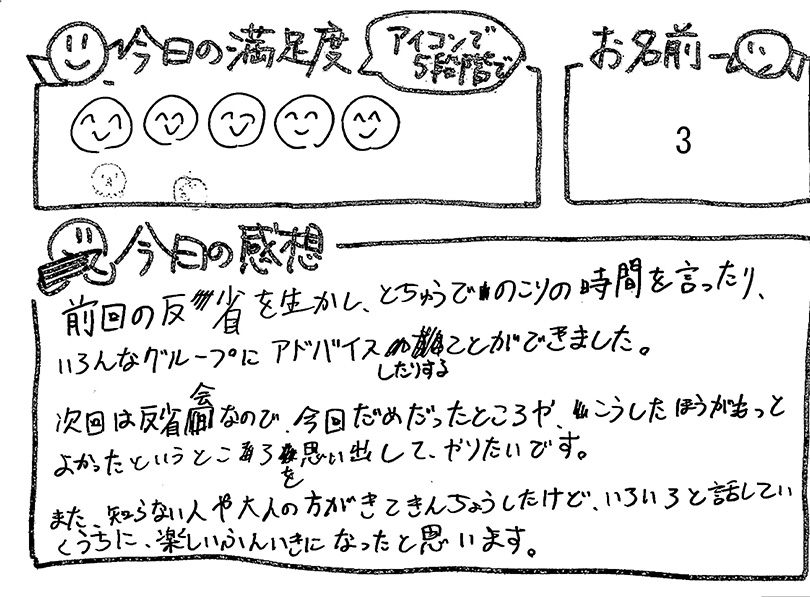 今日の満足度
アイコンで
5段階で
お名前
3
今日の感想
前回の反省を生かし、とちゅうでのこりの時間を言ったり、
いろんなグループにアドバイスしたりすることができました。
次回は反省会なので、今回だめだったところや、こうしたほうがもっと
よかったというところを思い出して、やりたいです。
また、知らない人や大人の方がきてきんちょうしたけど、いろいろと話してい
くうちに、楽しいふんいきになったと思います。